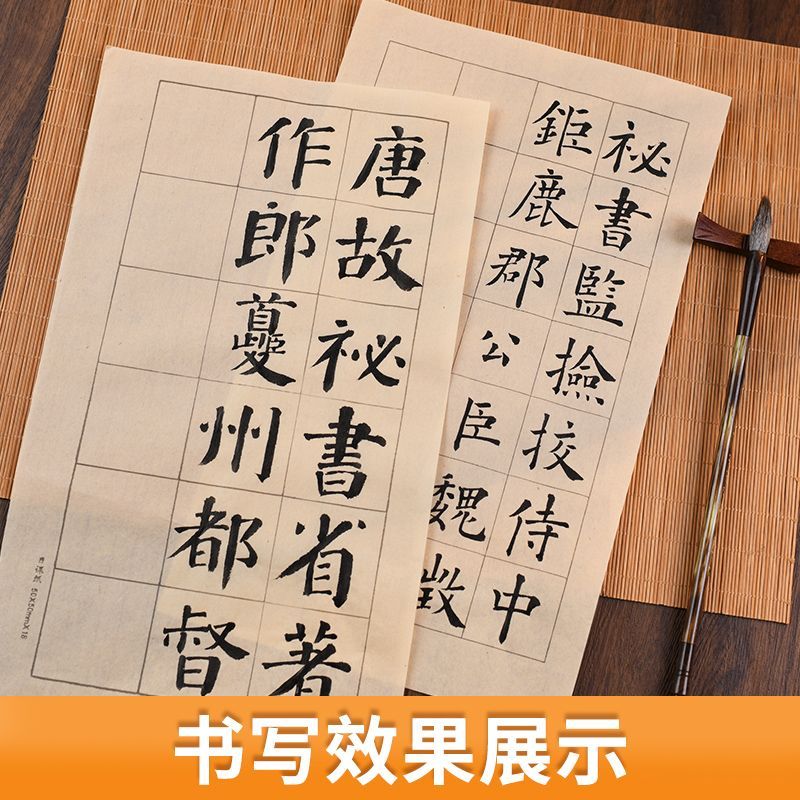 祕書監撿挍侍中
鉅鹿郡公臣魏徵
唐故祕書省著
作郎夔州都督
50X50mmX18
书写效果展示